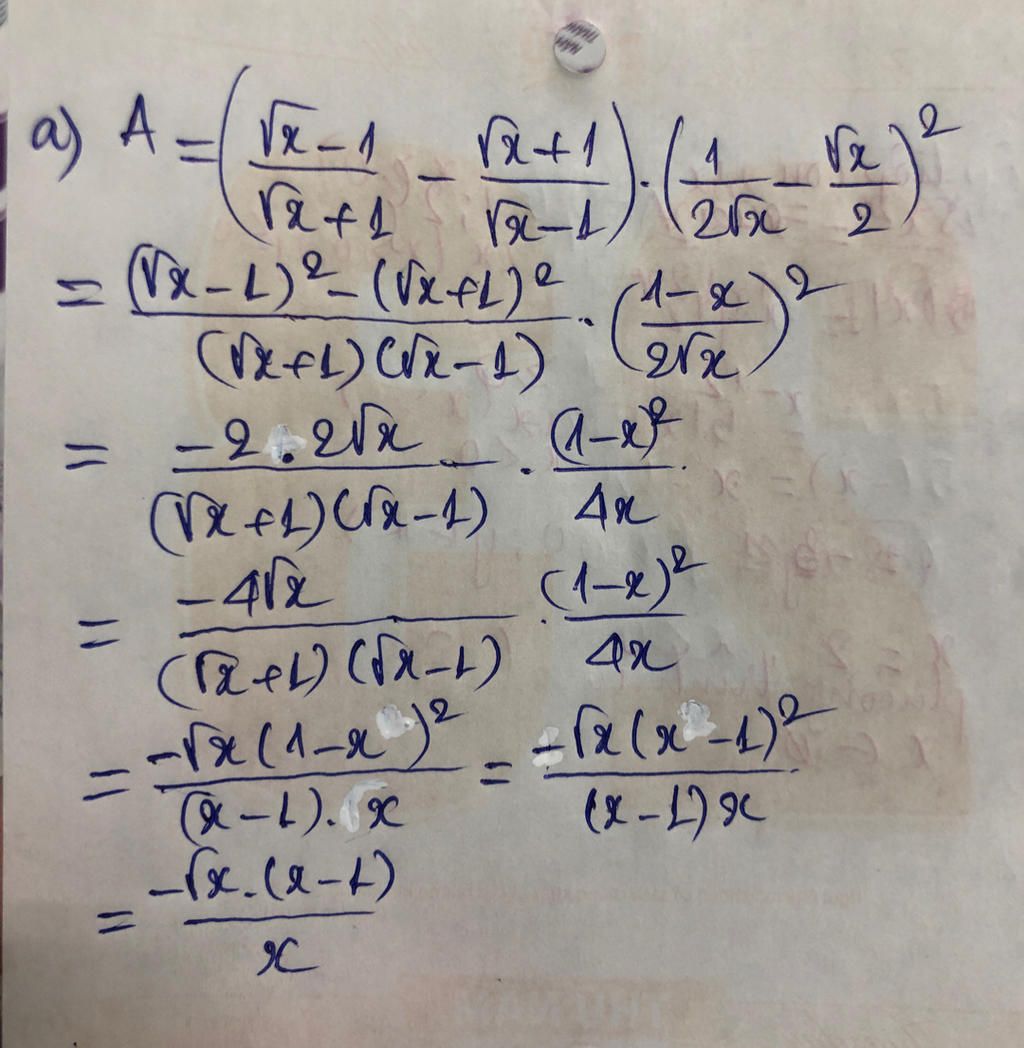 a) A = ( (√x - 1)/(√x + 1) - (√x + 1)/(√x - 1) ) . ( 1/(2√x) - √x/2 )²
= ((√x - 1)² - (√x + 1)²)/((√x + 1)(√x - 1)) . ( (1 - x)/(2√x) )²
= (-2 . 2√x)/((√x + 1)(√x - 1)) . (1 - x)²/(4x)
= (-4√x)/((√x + 1)(√x - 1)) . (1 - x)²/(4x)
= (-√x(1 - x)²)/((x - 1) . x) = (-√x(x - 1)²)/((x - 1)x)
= (-√x . (x - 1))/x